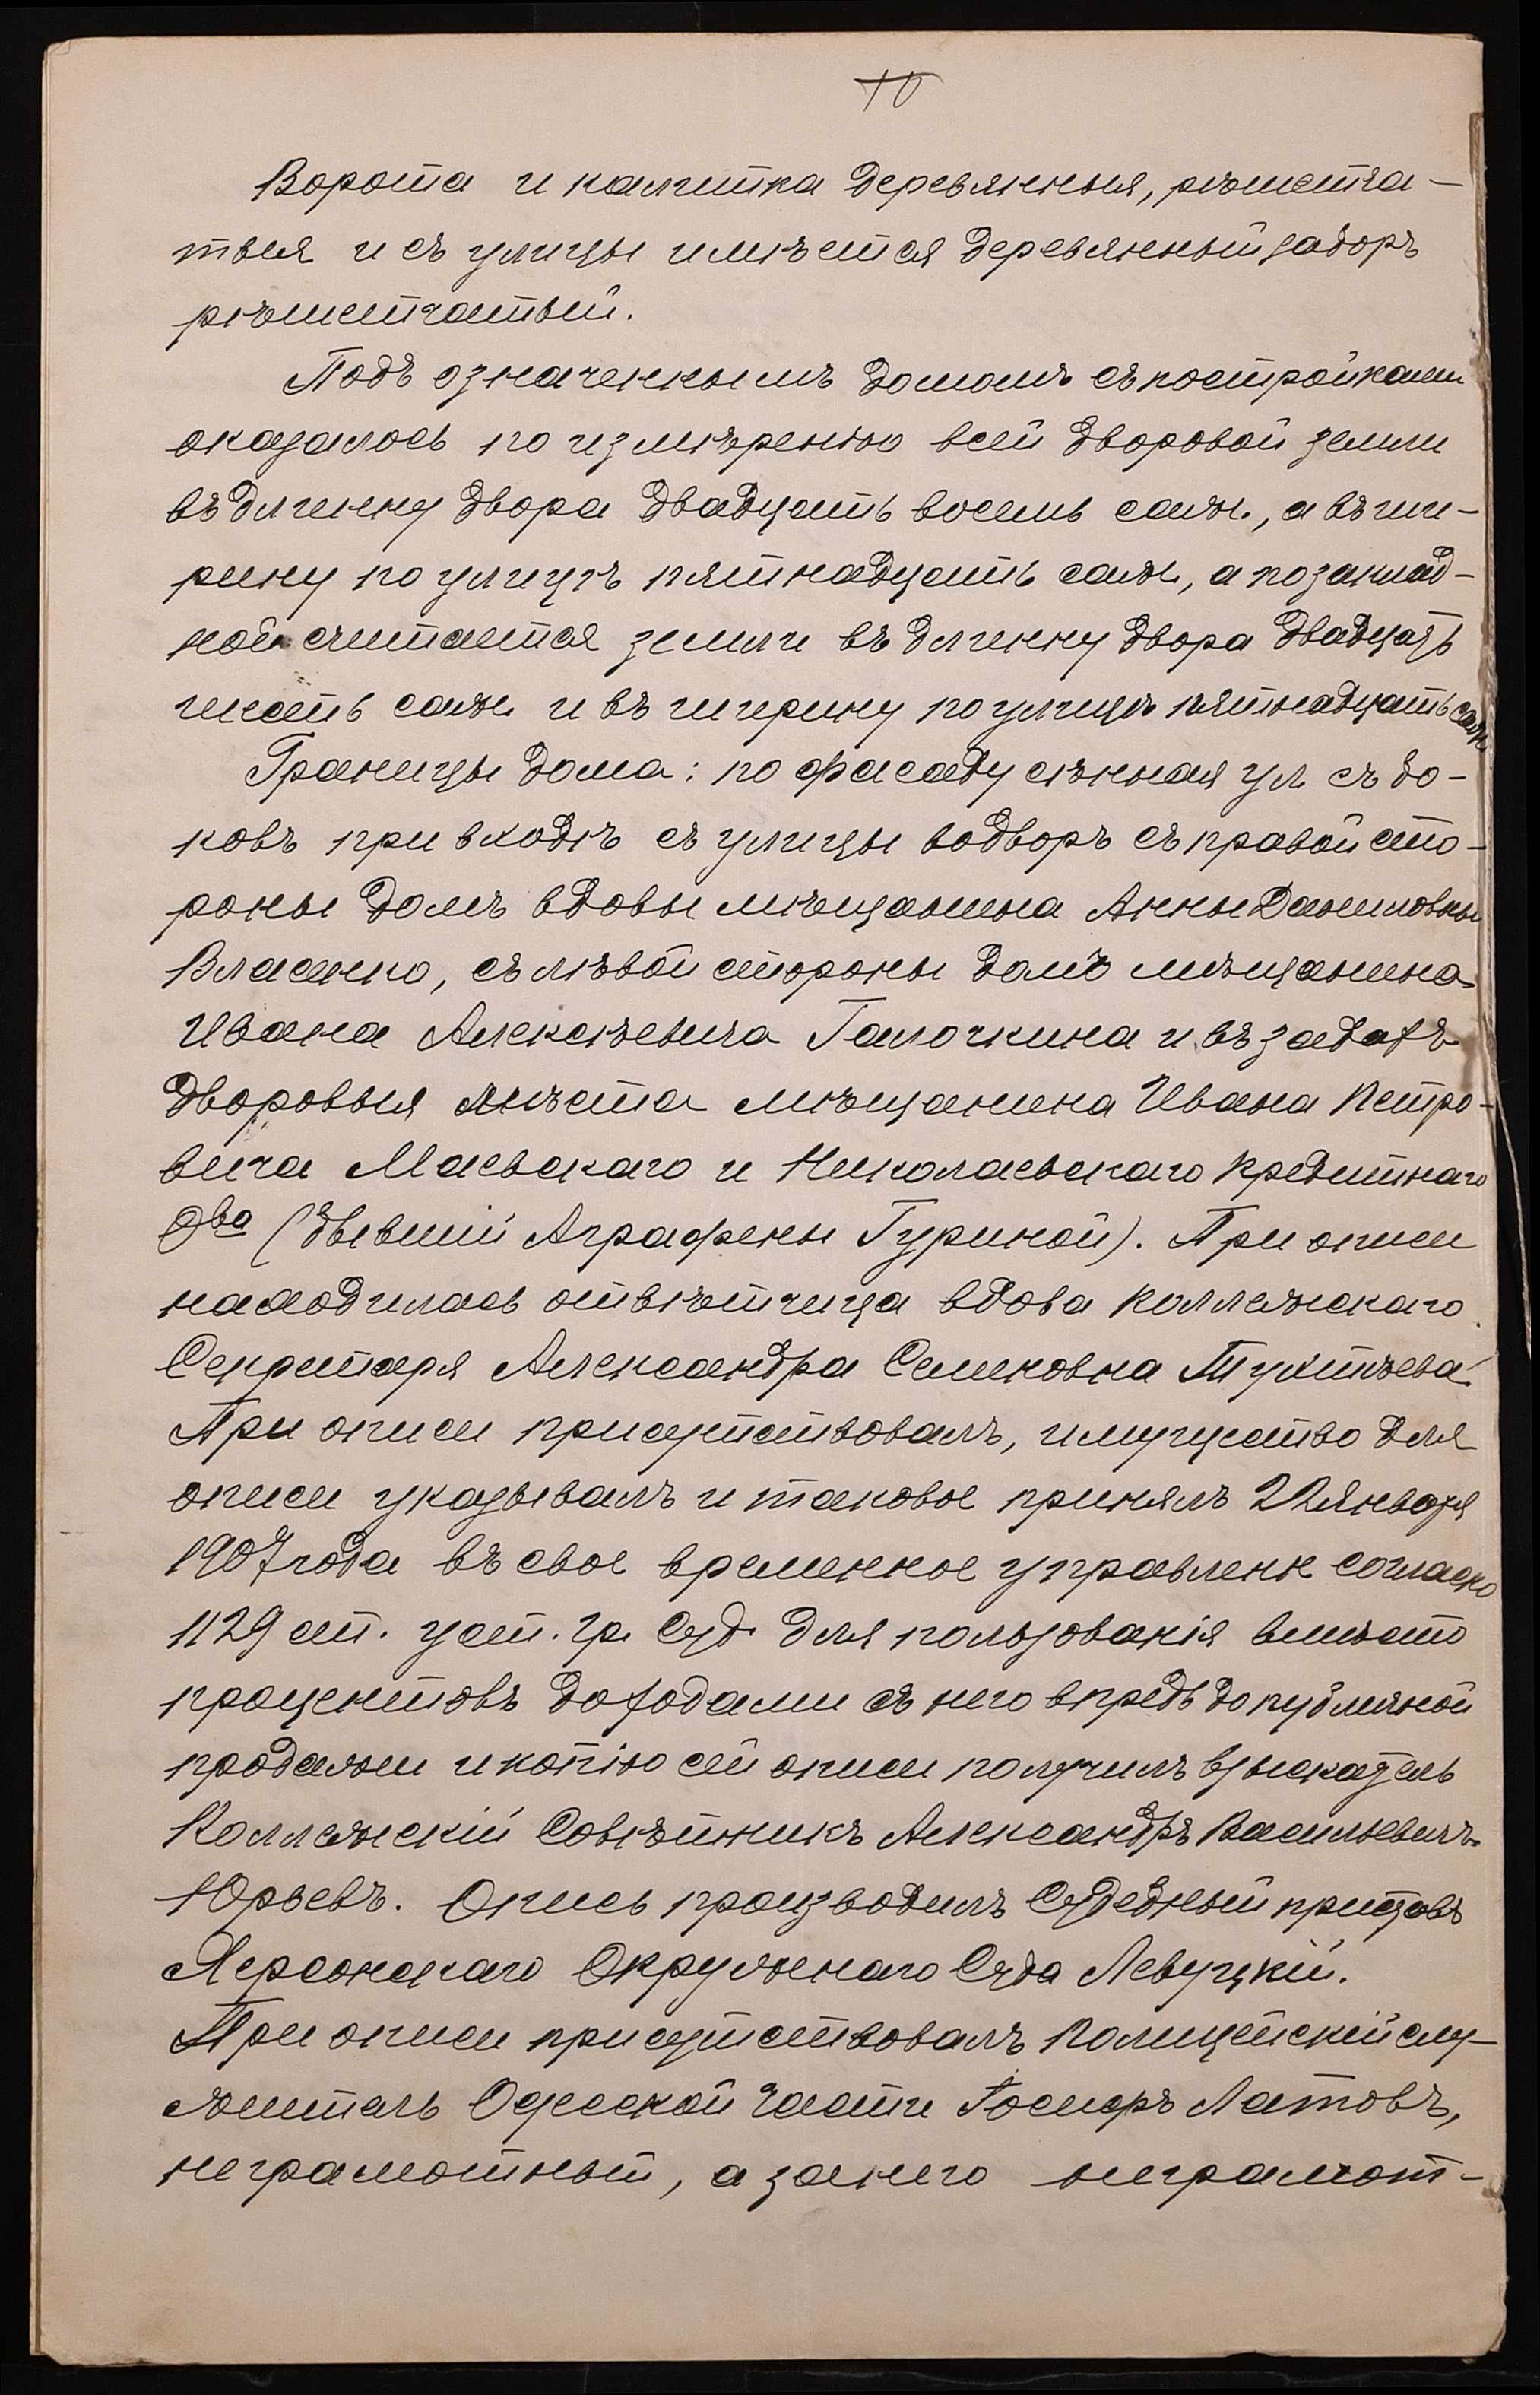 10
Ворота и калитка деревянныя, рѣшетча-
тыя и съ улицы имѣется деревянный заборъ
рѣшетчатый.
Подъ означеннымъ домомъ съ постройками
оказалось по измѣренію всей дворовой земли
въ длинну двора двадцать восемь саж., а въ ши-
рину по улицѣ пятнадцать саж, а по заклад-
ной считается земли въ длинну двора двадцать
шесть саж и въ ширину по улицѣ пятнадцать саж
Границы дома: по фасаду сѣнная ул съ бо-
ковъ при входѣ съ улицы во дворъ съ правой сто-
роны домъ вдовы мѣщанина Анны Даниловны
Власенко, съ лѣвой стороны домъ мѣщанина
Ивана Алексѣевича Галочкина и въ задахъ
дворовыя мѣста мѣщанина Ивана Петро-
вича Маевскаго и Николаевскаго Кредитнаго
Ова (бывшій Аграфены Гуриной). При описи
находилась отвѣтчица вдова Коллежскаго
Секретаря Александра Семеновна Тухтѣева.
При описи присутствовалъ, имущество для
описи указывалъ и таковое принялъ 22 Января
1907 года въ свое временное управлен согласно
1129 ст. уст. Гр. Суд. для пользованія вмѣсто
процентовъ доходами съ него впредь до публичной
продажи и копію сей описи получилъ взыскатель
Коллежскій Совѣтникъ Александръ Васильевичъ
Юрьевъ. Опись производилъ Судебный приставъ
Херсонскаго Окружнаго Суда Левуцкій.
При описи присутствовалъ Полицейскій слу-
житель Одесской части Госифръ Латовъ,
неграмотный, а за него неграмот-